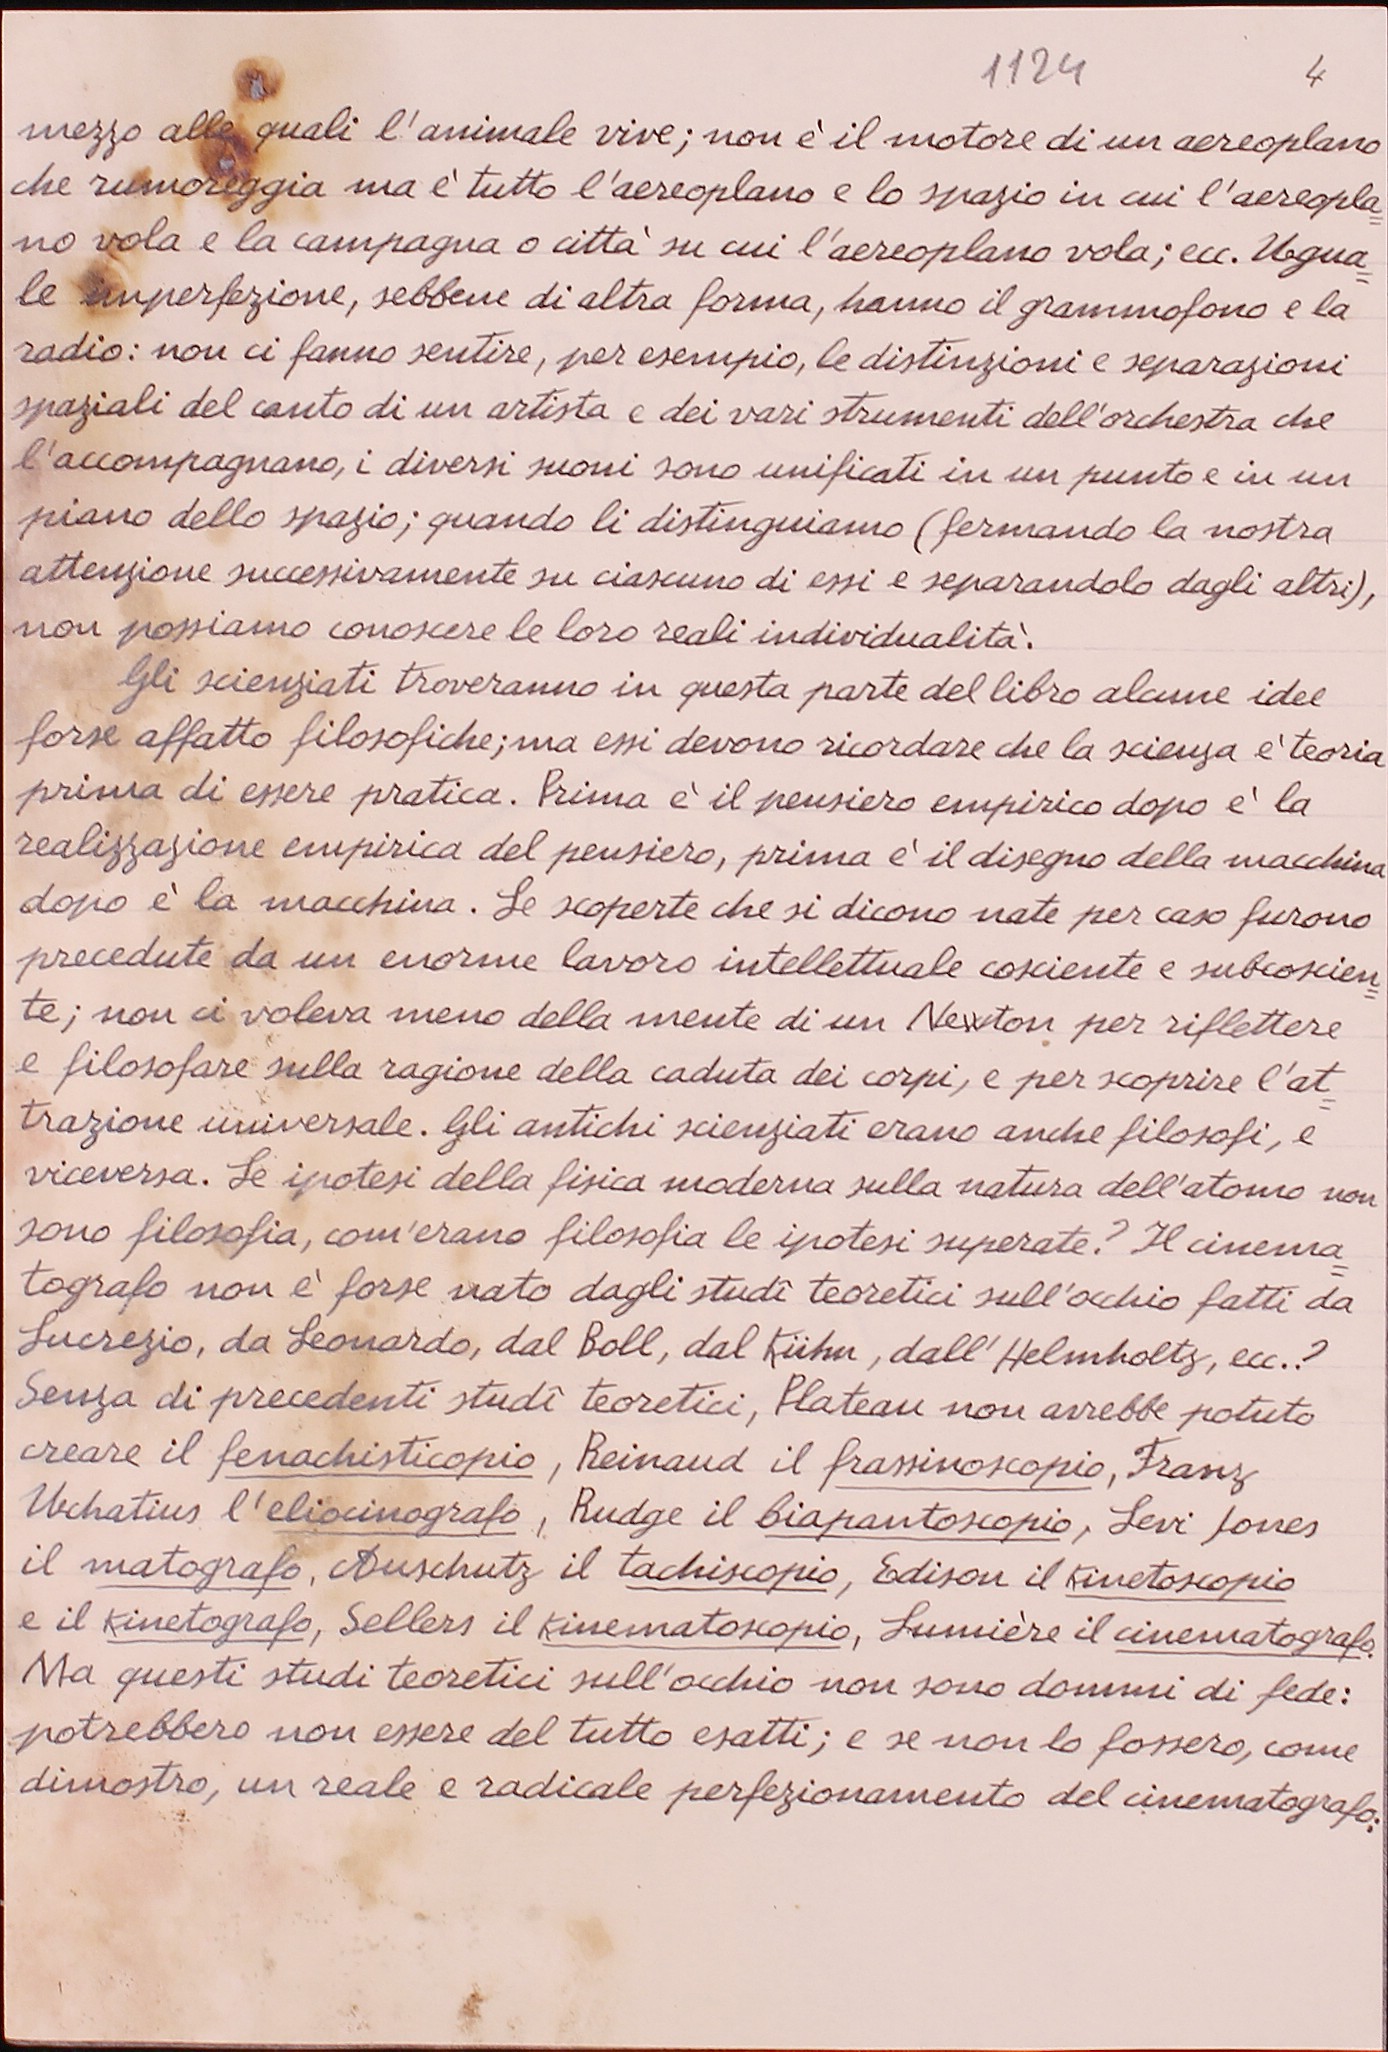 1124 4
mezzo alle quali l'animale vive; non è il motore di un aereoplano
che rumoreggia ma è tutto l'aereoplano e lo spazio in cui l'aereopla=
no vola e la campagna o città su cui l'aereoplano vola; ecc. Ugua=
le imperfezione, sebbene di altra forma, hanno il grammofono e la
radio: non ci fanno sentire, per esempio, le distinzioni e separazioni
spaziali del canto di un artista e dei vari strumenti dell'orchestra che
l'accompagnano, i diversi suoni sono unificati in un punto e in un
piano dello spazio; quando li distinguiamo (fermando la nostra
attenzione successivamente su ciascuno di essi e separandolo dagli altri),
non possiamo conoscere le loro reali individualità.
Gli scienziati troveranno in questa parte del libro alcune idee
forse affatto filosofiche; ma essi devono ricordare che la scienza è teoria
prima di essere pratica. Prima è il pensiero empirico dopo è la
realizzazione empirica del pensiero, prima è il disegno della macchina
dopo è la macchina. Le scoperte che si dicono nate per caso furono
precedute da un enorme lavoro intellettuale cosciente e subcoscien=
te; non ci voleva meno della mente di un Newton per riflettere
e filosofare sulla ragione della caduta dei corpi, e per scoprire l'at=
trazione universale. Gli antichi scienziati erano anche filosofi, e
viceversa. Le ipotesi della fisica moderna sulla natura dell'atomo non
sono filosofia, com'erano filosofia le ipotesi superate? Il cinema=
tografo non è forse nato dagli studî teoretici sull'occhio fatti da
Lucrezio, da Leonardo, dal Boll, dal Kühn, dall'Helmholtz, ecc.?
Senza di precedenti studî teoretici, Plateau non avrebbe potuto
creare il fenachisticopio, Reinaud il frassinoscopio, Franz
Uchatius l'eliocinografo, Rudge il biapantoscopio, Levi Jones
il matografo, Auschutz il tachiscopio, Edison il kinetoscopio
e il kinetografo, Sellers il kinematoscopio, Lumière il cinematografo.
Ma questi studi teoretici sull'occhio non sono dommi di fede:
potrebbero non essere del tutto esatti; e se non lo fossero, come
dimostro, un reale e radicale perfezionamento del cinematografo: